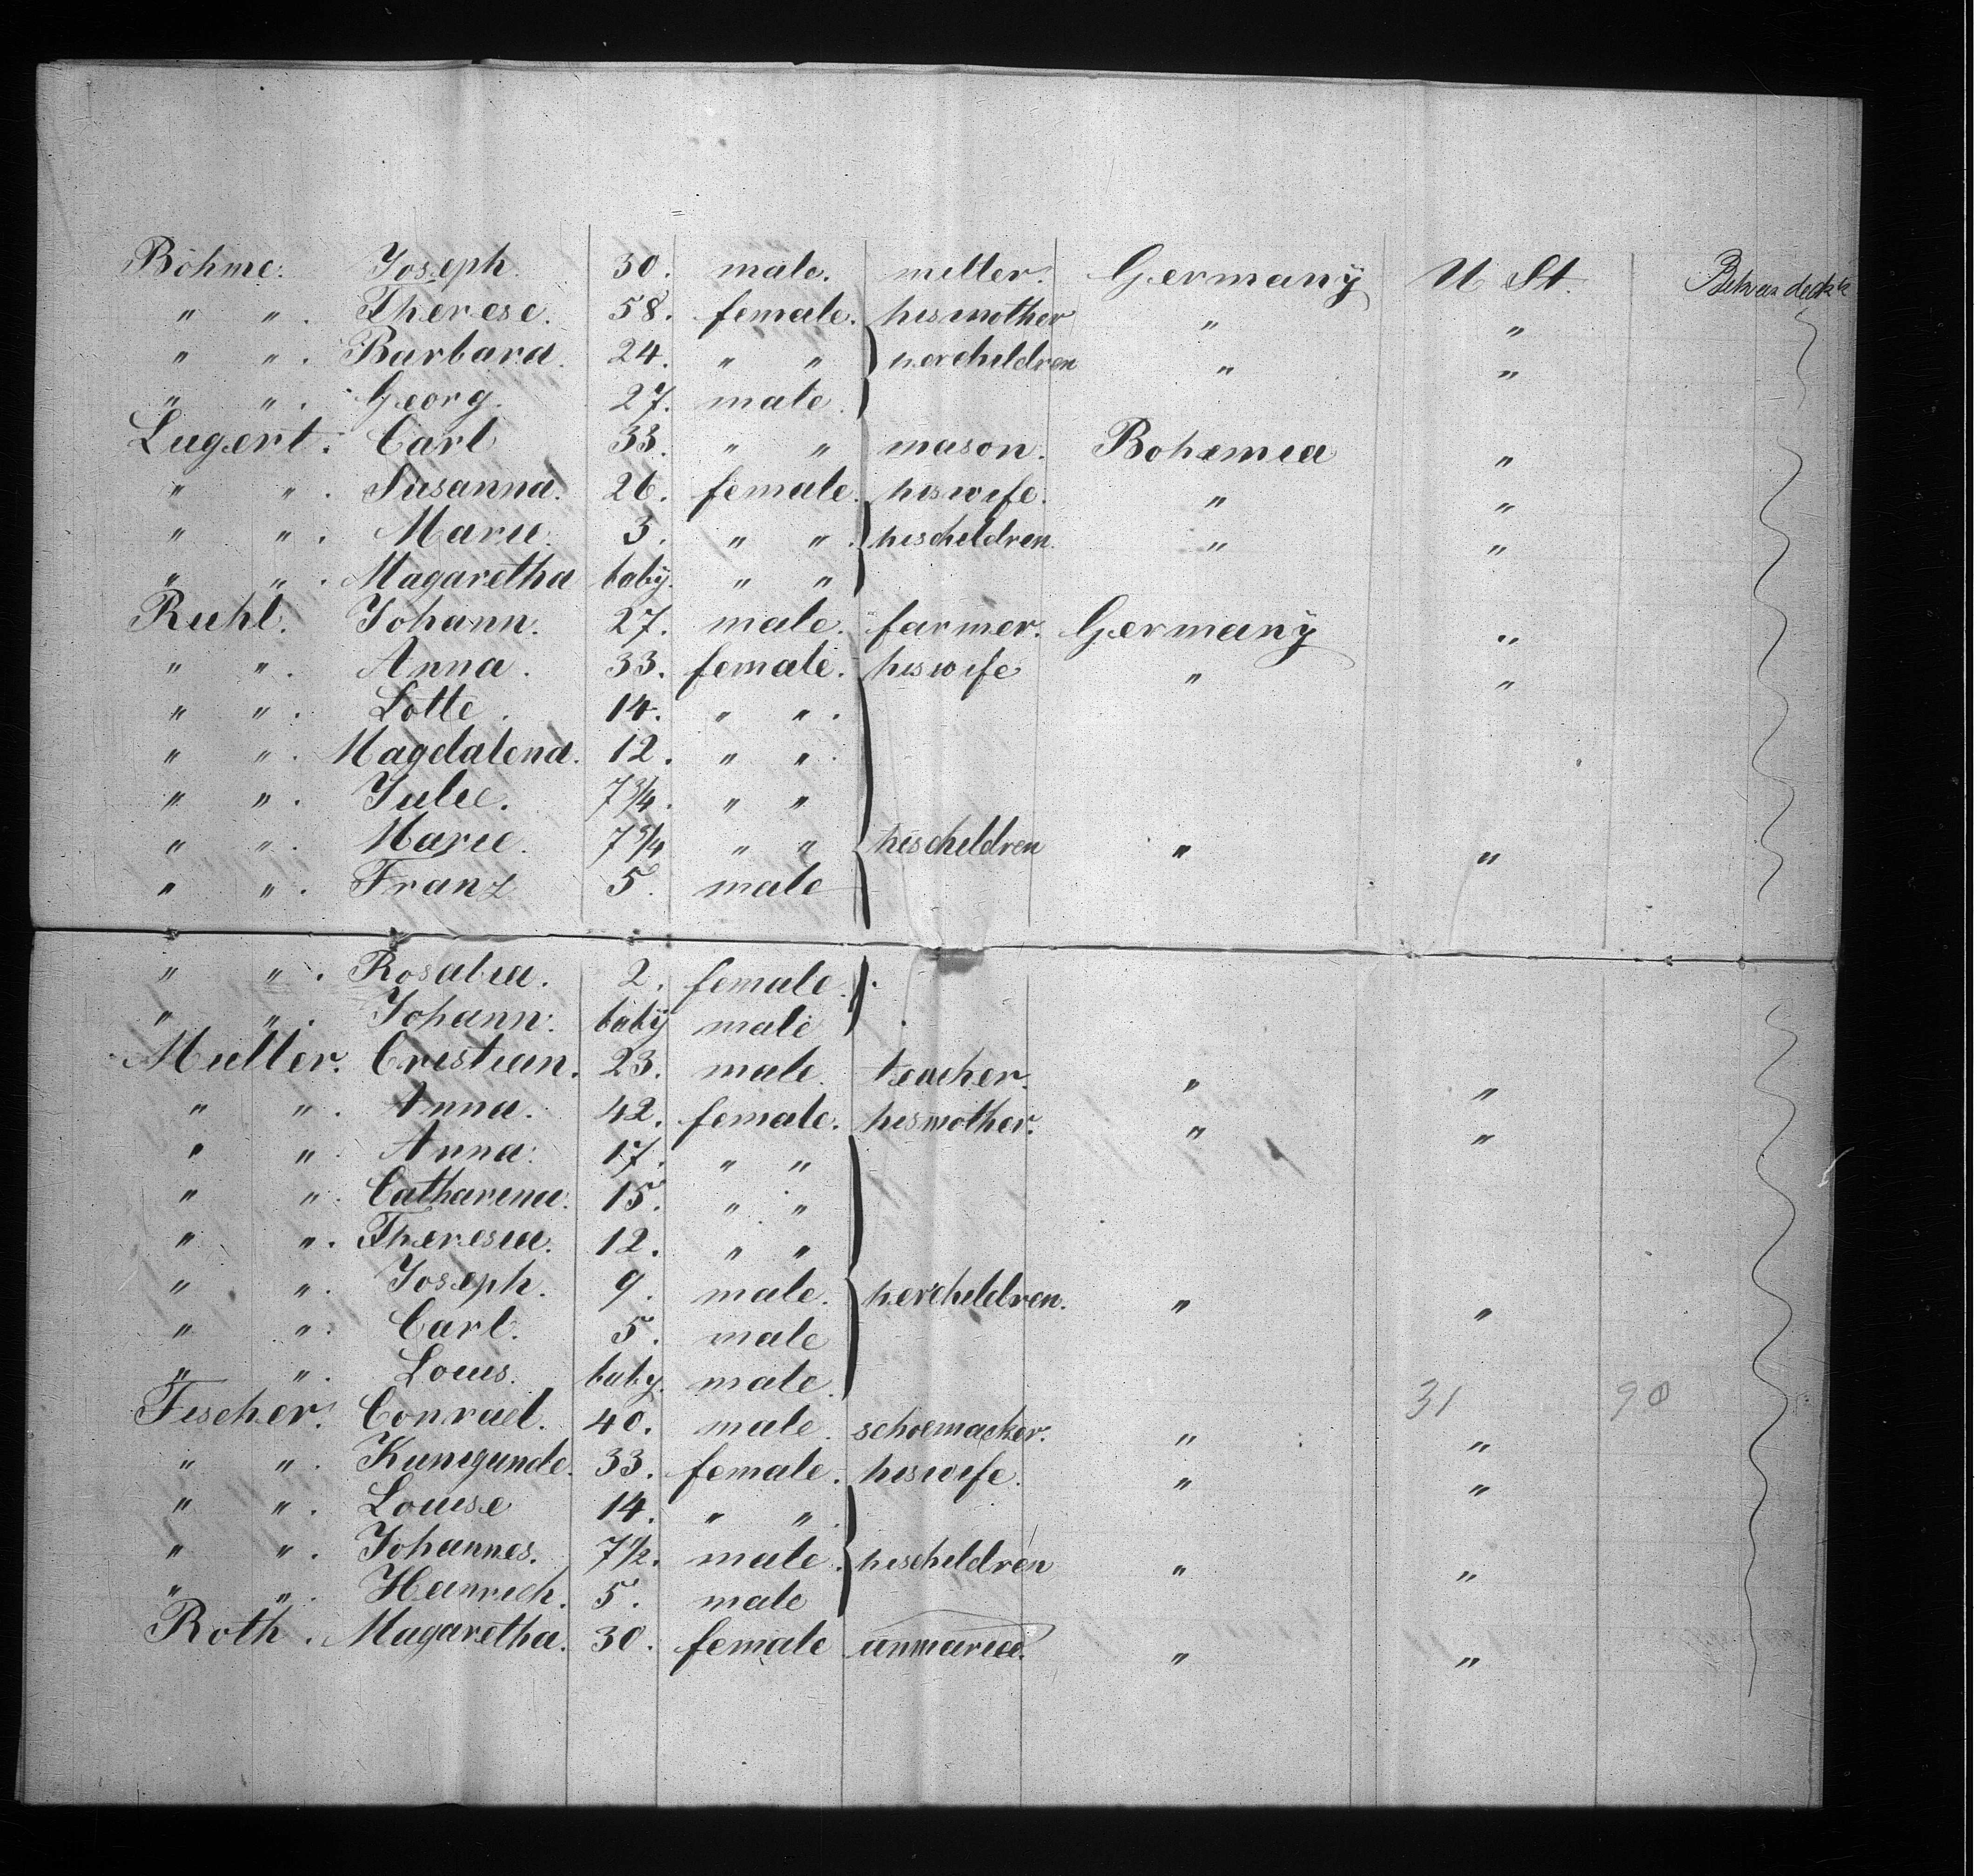 Böhme. Joseph. 30. male. miller. Germany U St. Between deck
" " . Therese. 58. female. his mother " "
" " . Barbara. 24. " " } her children " "
" " . Georg. 27. male.
Lugert. Carl 33. " " mason. Bohemia "
" " . Susanna. 26. female. his wife. " "
" " . Marie. 3. " " . } his children. " "
" " . Magaretha baby. " "
Ruhl. Johann. 27. male. farmer. Germany "
" " . Anna. 33. female. his wife " "
" " . Lotte. 14. " " .
" " . Magdalena. 12. " " .
" " . Julie. 7 3/4. " "
" " . Marie. 7 3/4 " " } his children " "
" " . Franz 5. male
" " . Rosalia. 2. female.
" " . Johann. baby male
Muller. Cristian. 23. male. teacher. " "
" " . Anna. 42. female. his mother. " "
" " . Anna. 17. " "
" " . Catharina. 15. " "
" " . Theresia. 12. " "
" " . Joseph. 9. male. } her children. " "
" " . Carl. 5. male
" " . Louis. baby. male.
31 90
Fischer. Conrad. 40. male. schoemacker. " "
" " . Kunigunde. 33. female. his wife. " "
" " . Louise 14. " " .
" " . Johannes. 7 1/2. male. } his children " "
" " . Heinrich. 5. male
Roth. Magaretha. 30. female unmaried. " "